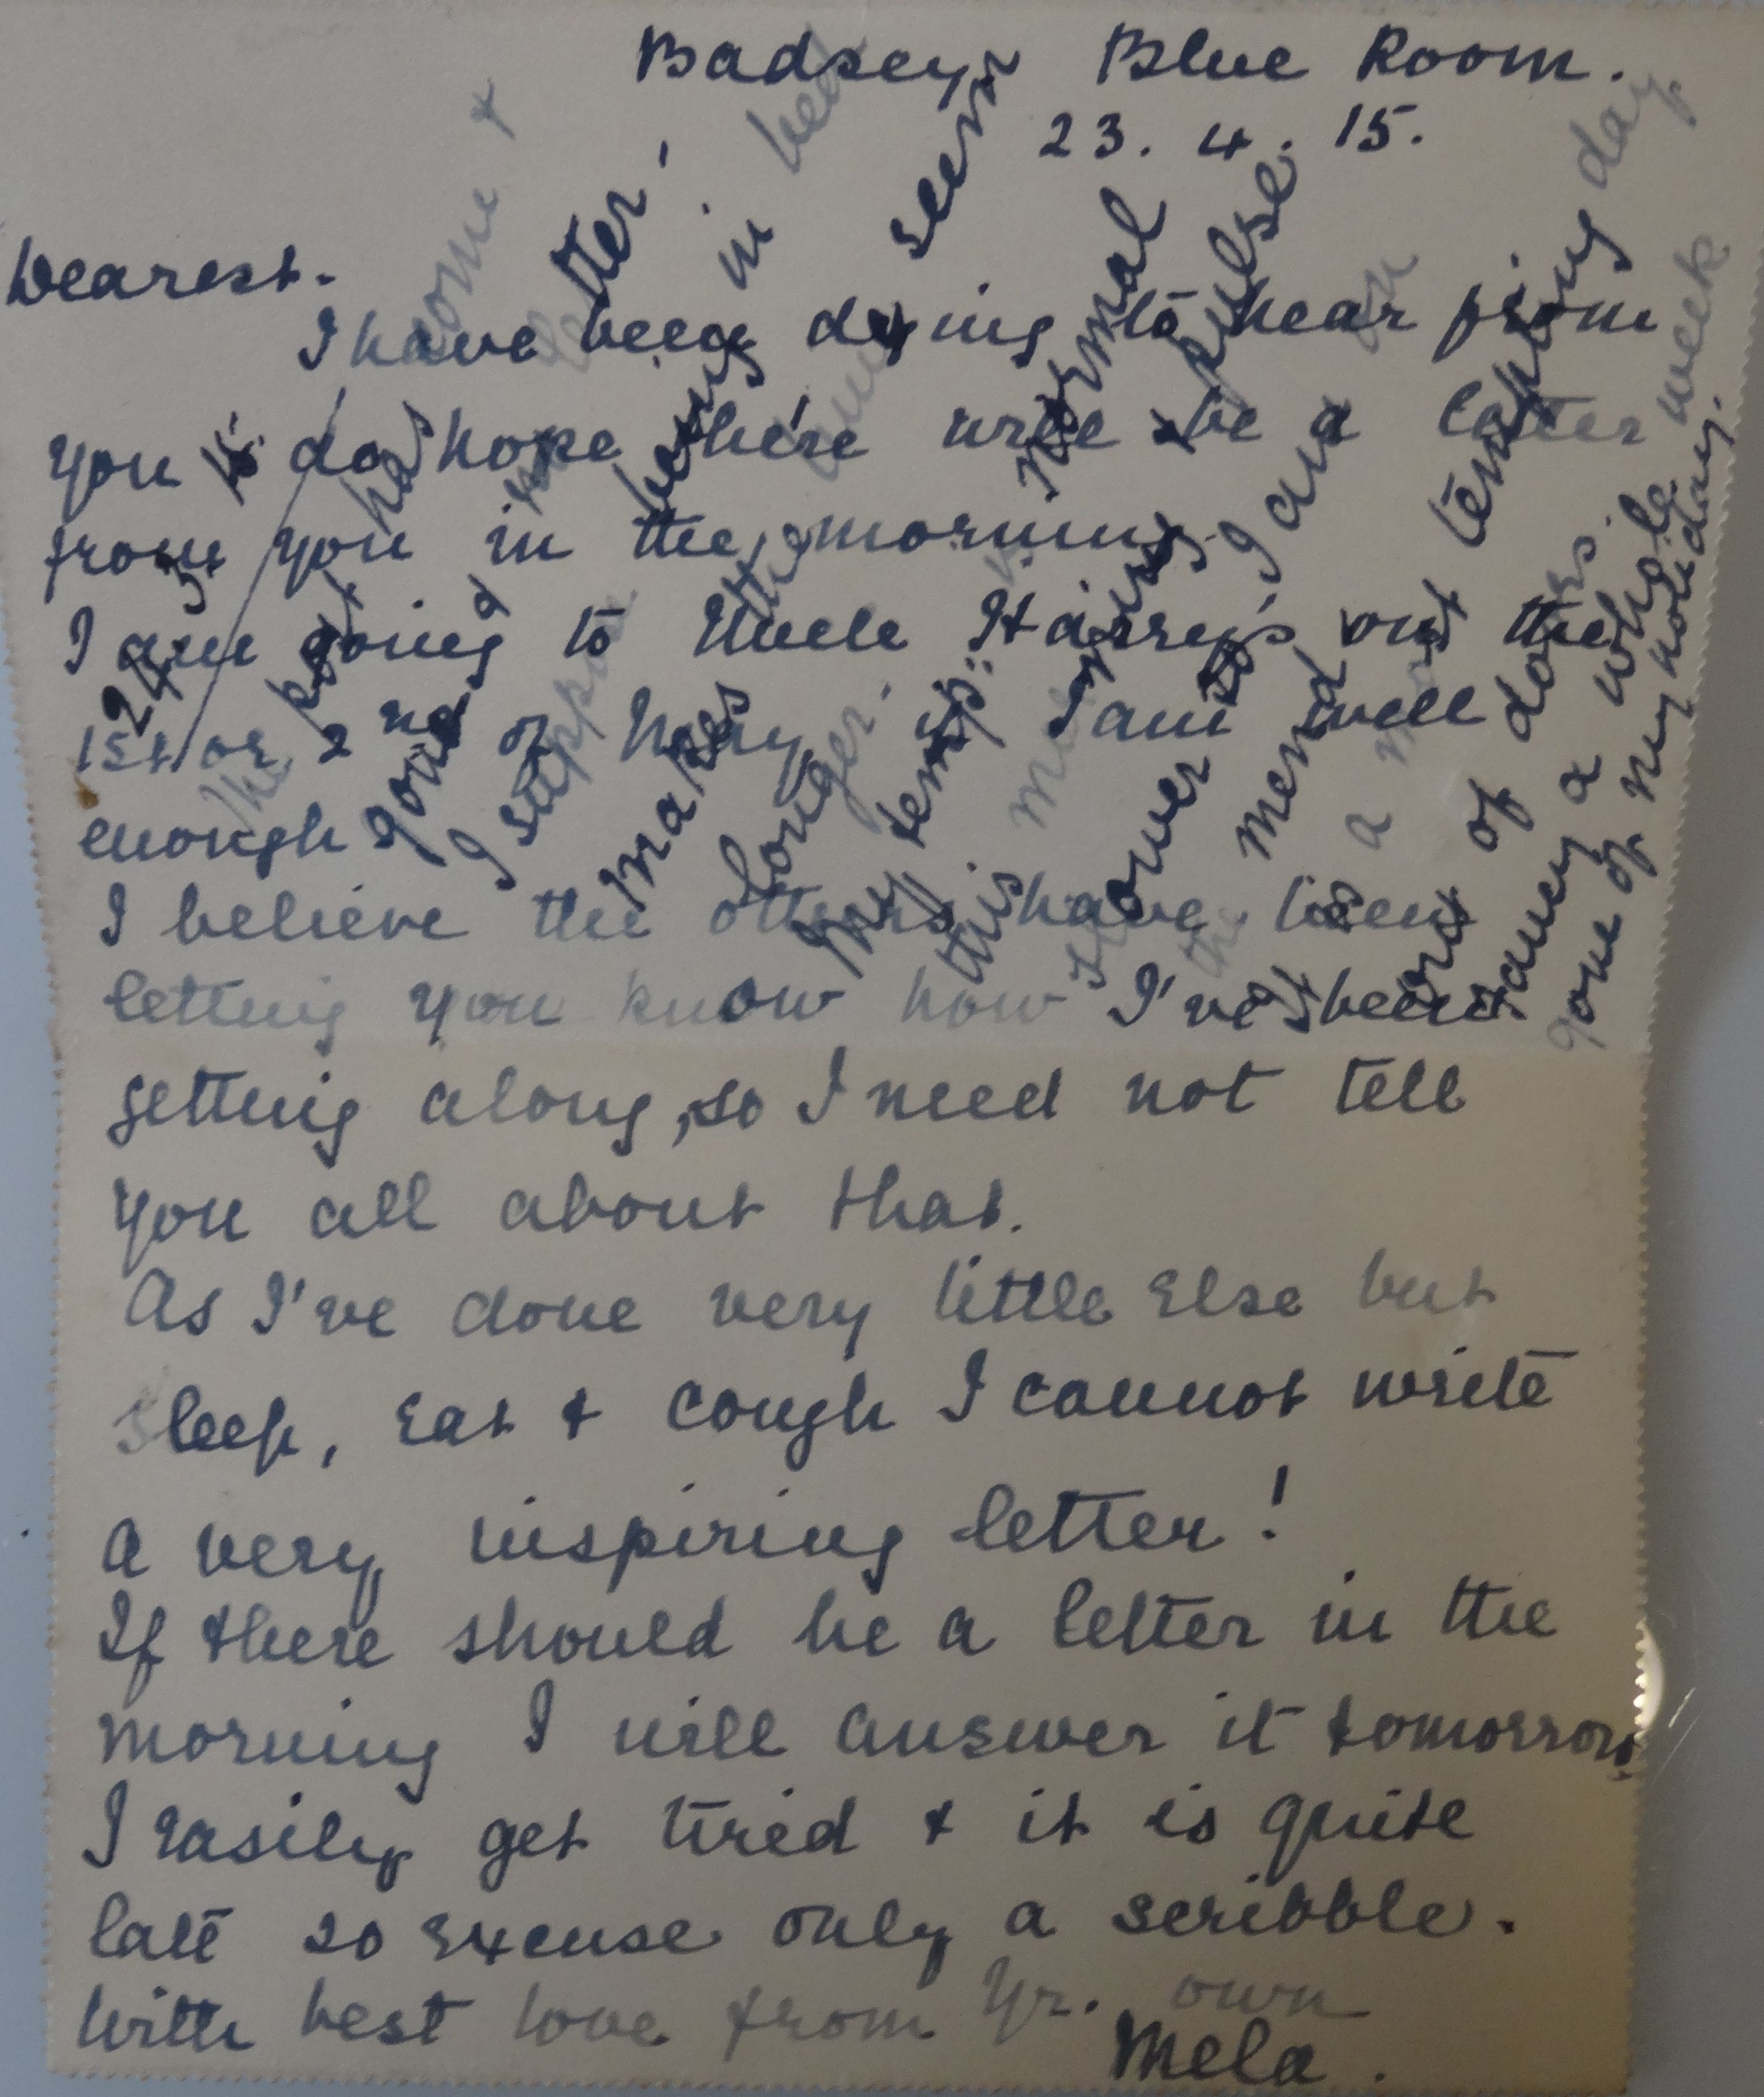 Badsey Blue Room.
23. 4. 15.
Dearest.
I have been dying to hear from
you & do hope there will be a letter
from you in the morning.
I am going to Uncle Harry's on the
1st or 2nd of May if I am well
enough
I believe the others have been
letting you know how I've been
getting along, so I need not tell
you all about that.
As I've done very little else but
sleep, eat & cough I cannot write
a very inspiring letter!
If there should be a letter in the
morning I will answer it tomorrow.
I easily get tired & it is quite
late so excuse only a scribble.
With best love from Yr. own
Mela.
24
The post has come &
gone & no letter!
I suppose being in bed
makes the time seem
longer.
My temp: is normal
this morning & pulse
slower so I am on
the mend
It is a most tempting day
out of doors.
Fancy a whole week
gone of my holiday.